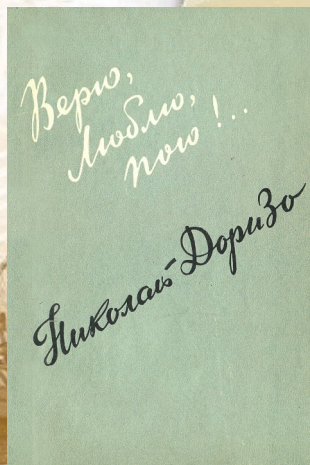 Верю,
люблю,
пою!..
Николай Доризо